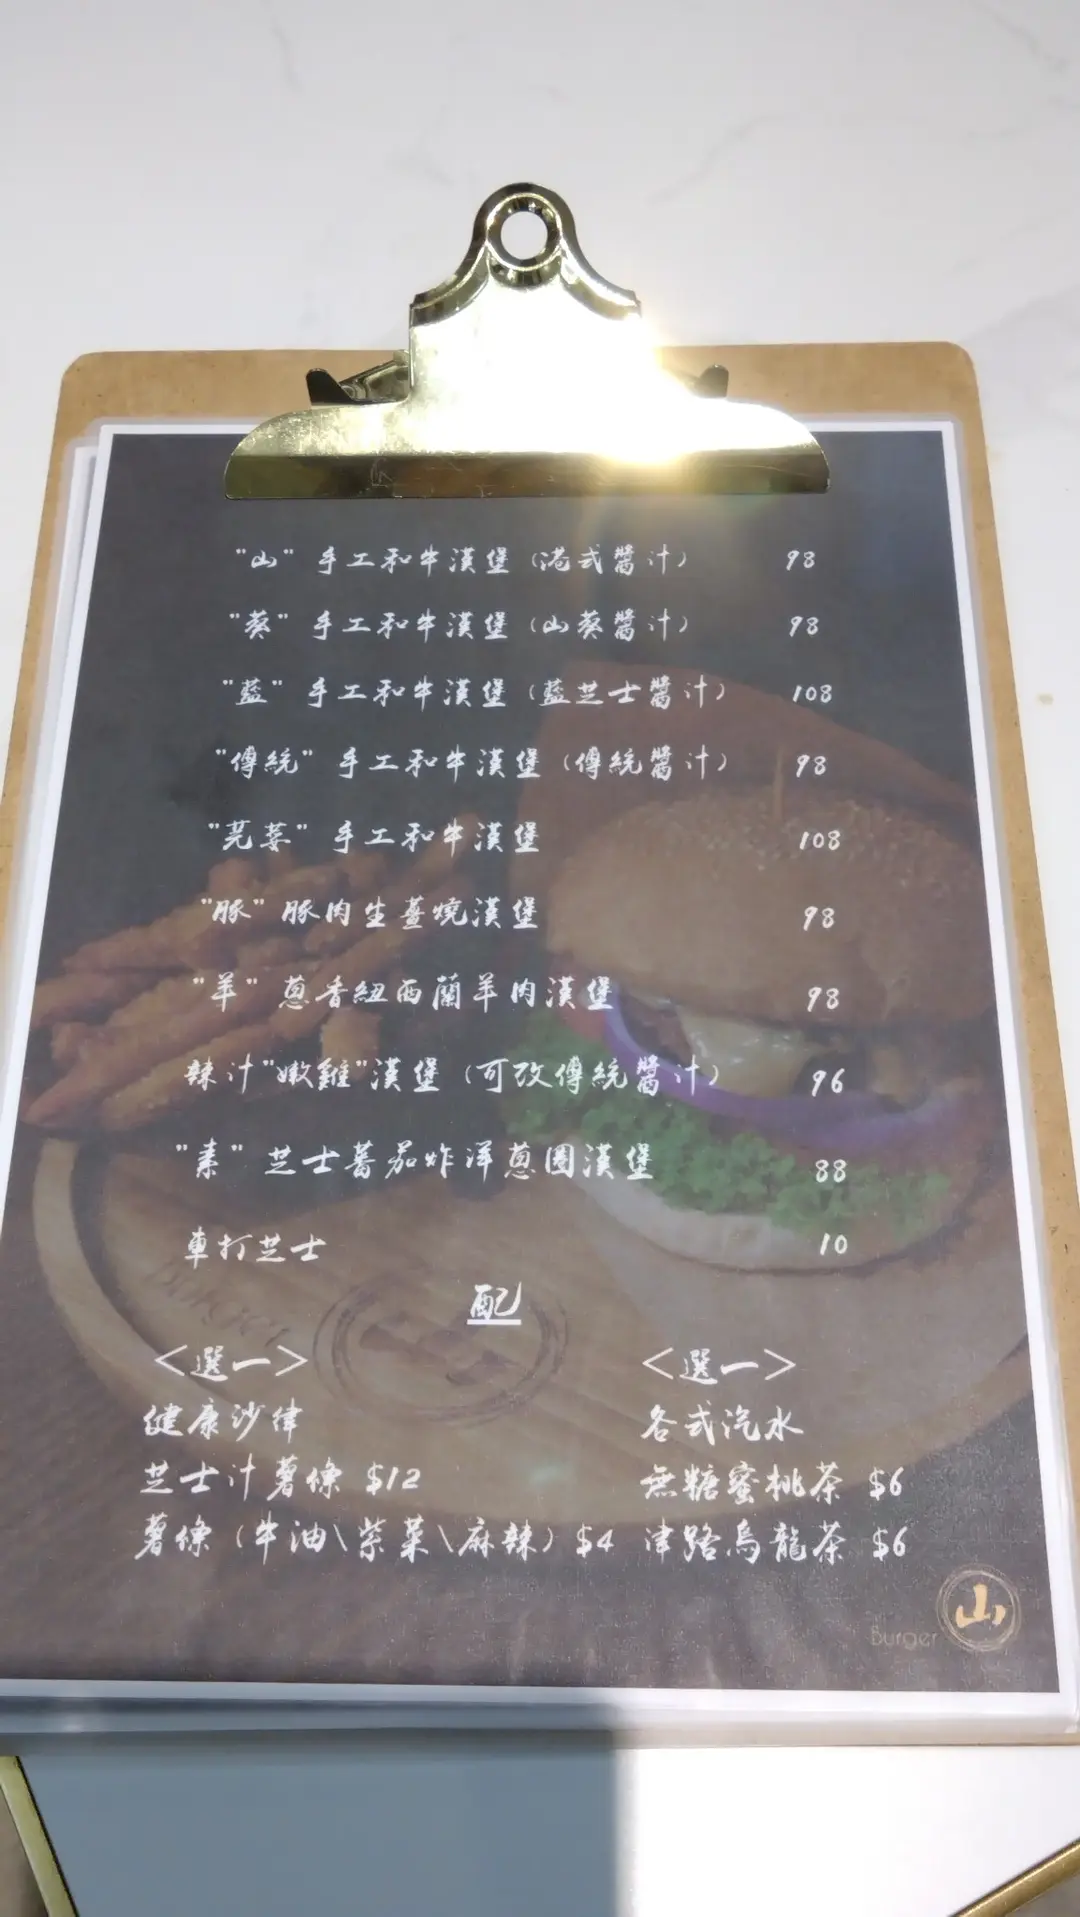 "山" 手工和牛漢堡 (港式醬汁) 98
"葵" 手工和牛漢堡 (山葵醬汁) 98
"藍" 手工和牛漢堡 (藍芝士醬汁) 108
"傳統" 手工和牛漢堡 (傳統醬汁) 98
"芫荽" 手工和牛漢堡 108
"豚" 豚肉生薑燒漢堡 98
"羊" 蔥香紐西蘭羊肉漢堡 98
辣汁"嫩雞"漢堡 (可改傳統醬汁) 96
"素" 芝士蕃茄炸洋蔥圈漢堡 88
車打芝士 10
配
<選一> <選一>
健康沙律 各式汽水
芝士汁薯條 $12 無糖蜜桃茶 $6
薯條 (牛油\紫菜\麻辣) $4 津路烏龍茶 $6
Burger 山